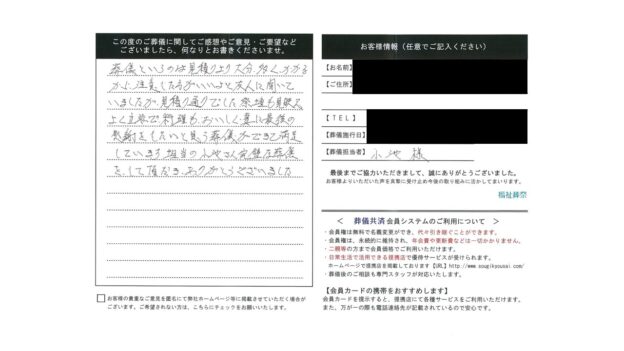 この度のご葬儀に関してご感想やご意見・ご要望など
ございましたら、何なりとお書きくださいませ。
葬儀というのは見積りより大分多くかかる
から注意した方がいいよと友人に聞いて
いましたが、見積り通りでした。祭壇も見映え
よく立派で料理もおいしく真に最後の
感謝をしたいと思う葬儀ができて満足
しています。担当の小池さん完璧な葬儀
をして頂き、ありがとうございました
お客様の貴重なご意見を匿名にて弊社ホームページ等に掲載させていただく場合が
ございます。ご希望されない方は、こちらにチェックをお願いいたします。
お客様情報（任意でご記入ください）
【お名前】
【ご住所】
【TEL】
【葬儀施行日】
【葬儀担当者】 小池 様
最後までご協力いただきまして、誠にありがとうございました。
お客様よりいただいた声を真摯に受け止め今後の取り組みに活かしてまいります。
福祉葬祭
＜ 葬儀共済 会員システムのご利用について ＞
・会員権は無料で名義変更ができ、代々引き継ぐことができます。
・会員権は、永続的に維持され、年会費や更新費などは一切かかりません。
・二親等の方まで会員価格でご利用いただけます。
・日常生活で活用できる提携店で優待サービスが受けられます。
ホームページで提携店を掲載しております【URL】http://www.sougikyousai.com/
・葬儀後のご相談も専門スタッフが対応いたします。
【会員カードの携帯をおすすめします】
会員カードを提示すると、提携店にて各種サービスをご利用いただけます。
また、万が一の際も電話連絡先が記載されているので安心です。